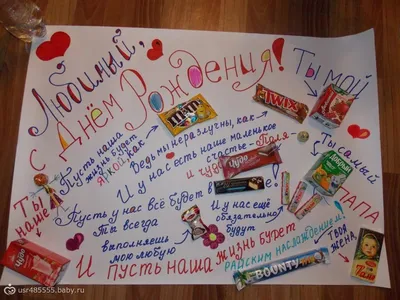 Любимый,
С Днём Рождения!
Ты мой
Пусть наша
жизнь будет
ЯРКОЙ, как
m&m's
Ведь мы неразлучны, как
TWIX
И у нас есть наше маленькое
счастье - Поля -
и чудо
Чудо
Ты самый
Добрый
ПАПА
Пусть у нас всё будет в
И у нас ещё
обязательно
будут
Ты всегда
выполняешь
мою любую
Ты
наше
Чудо
И пусть наша жизнь будет
райским наслаждением!
BOUNTY
Твоя
жена
usr485555.baby.ru